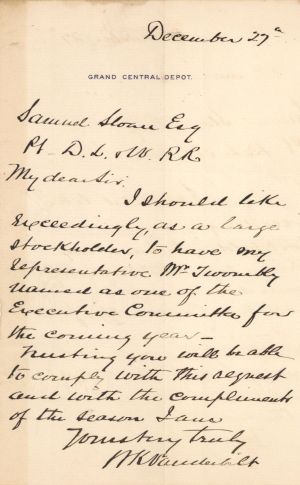 December 27th
GRAND CENTRAL DEPOT.
Samuel Sloan Esq
Pt. D. L. & W. R.R
My dear Sir.
I should like
exceedingly, as a large
stockholder, to have my
representative Mr Twombly
named as one of the
Executive Committee for
the coming year —
Trusting you will be able
to comply with this request
and with the compliments
of the season I am
Yours very truly
WK Vanderbilt